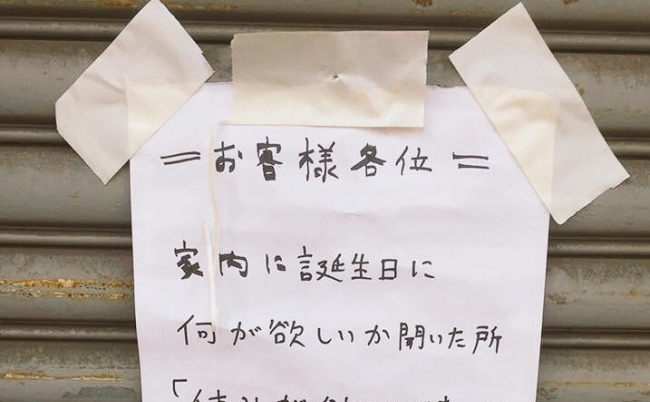 =お客様各位=
家内に誕生日に
何が欲しいか開いた所